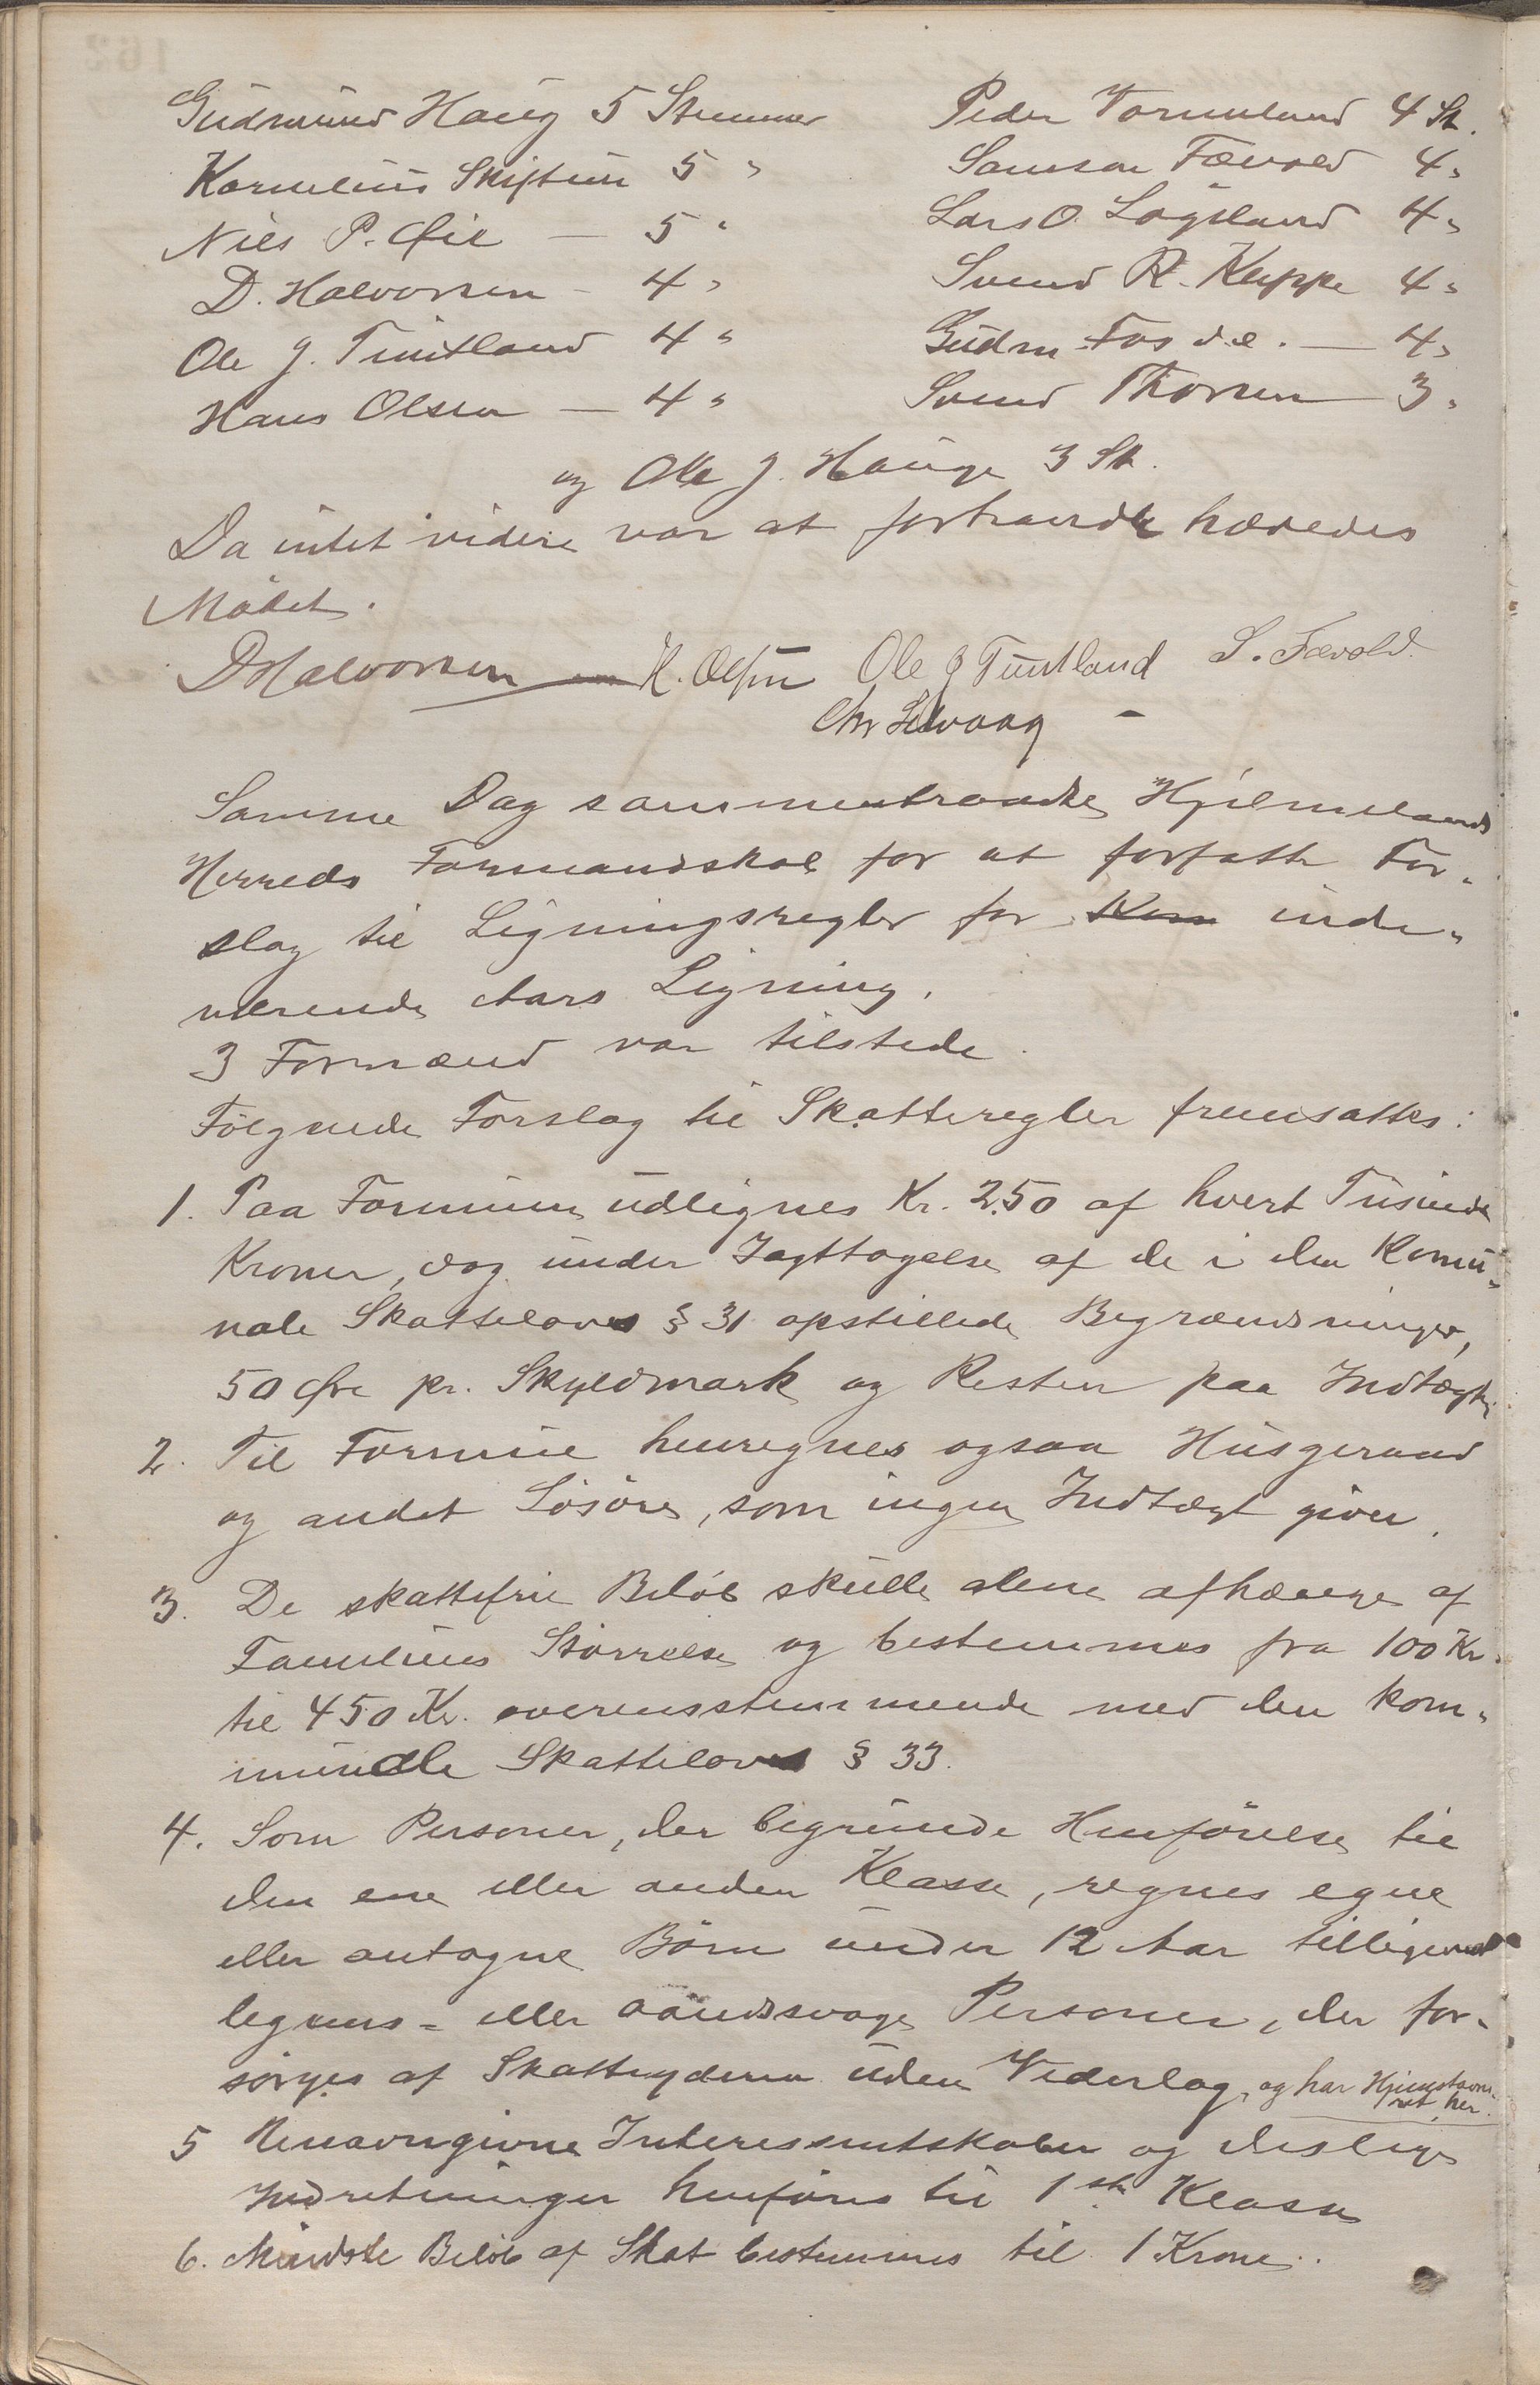 Gudmund Haug 5 Stemmer
Kornelius Skiftun 5 "
Nils P. Øie — 5 "
D. Halvorsen - 4 "
Ole J. Tuntland 4 "
Hans Olsen — 4 "
Peder Vormeland 4 St.
Samson Fævold 4 "
Lars O. Lögeland 4 "
Svend R. Kleppe 4 "
Gudm Fosdal. — 4 "
Svend Thorsen — 3 "
og Ole J. Hauge 3 St.
Da intet videre var at forhandle hævedes
Mödet.
DHalvorsen H. Olsen Ole J Tuntland S. Fævold.
Chr Selvaag
Samme Dag sammentraadte Hjelmelands
Herreds Formandskab for at forfatte For-
slag til Ligningsregler for Kom inde-
værende Aars Ligning.
3 Formænd var tilstede.
Fölgende Forslag til Skatteregler fremsattes:
1. Paa Formuen udlignes Kr. 2.50 af hvert Tusinde
Kroner, dog under Iagttagelse af de i den Komu-
nale Skattelovs § 31 opstillede Begrændsninger,
50 Øre pr. Skyldmark og Resten paa Indtægten
2. Til Formue henregnes ogsaa Husgeraad
og andet Lösöre, som ingen Indtægt giver.
3. De skattefrie Belöb skulle alene afhænge af
Familiens Störrelse og bestemmes fra 100 Kr.
til 450 Kr. overensstemmende med den kom-
munale Skattelovs § 33.
4. Som Personer, der begrunde Henförelse til
den ene eller anden Klasse, regnes egne
eller antagne Börn under 12 Aar tilligemed
legems- eller aandssvage Personer, der for-
sörges af Skatteyderen uden Vederlag, og har Hjemstavns-
ret her.
5 Unavngivne Interessentskaber og deslige
Indretninger henföres til 1ste Klasse
6. Mindste Belöb af Skat bestemmes til 1 Krone.